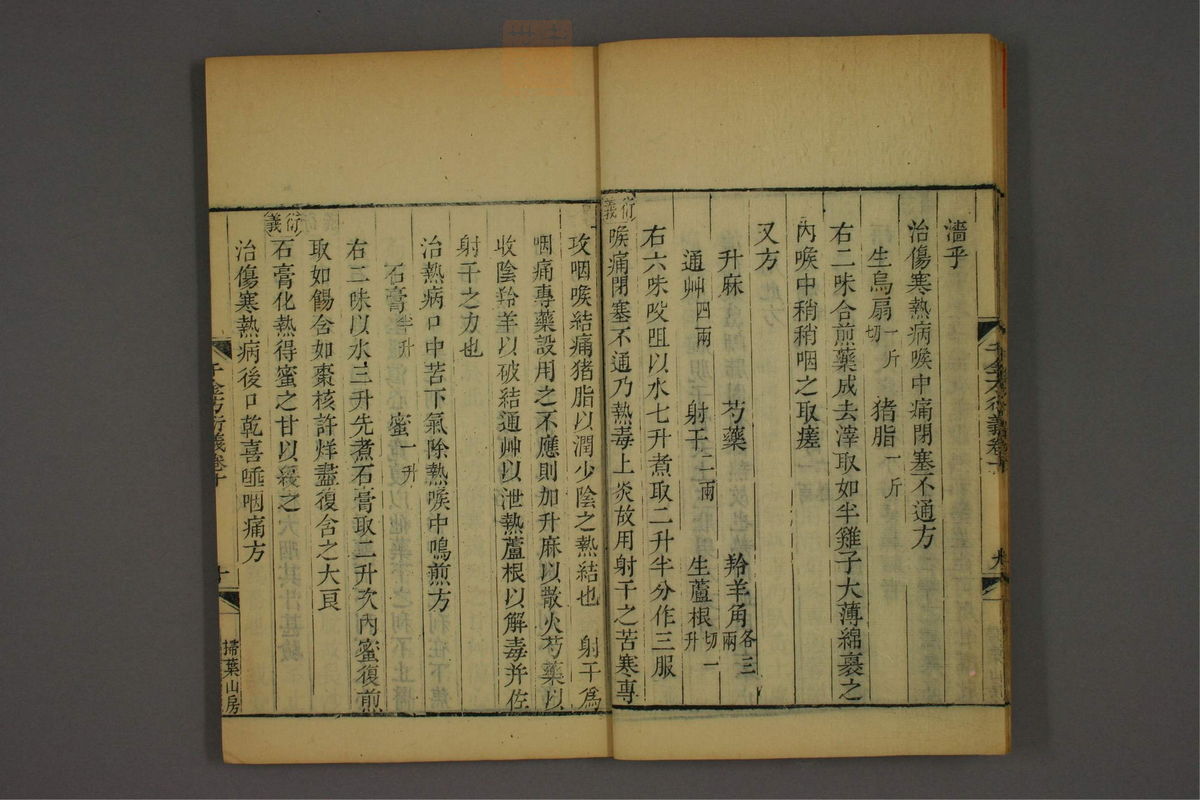 濇乎
治傷寒熱病喉中痛閉塞不通方
生烏扇一斤切 猪脂一斤
右二味合煎藥成去滓取如半雞子大薄綿裹之
內喉中稍稍咽之取瘥
又方
升麻 芍藥 羚羊角各三兩
通艸四兩 射干二兩 生蘆根切一升
右六味㕮咀以水七升煮取二升半分作三服
衍義
喉痛閉塞不通乃熱毒上炎故用射干之苦寒專
攻咽喉結痛猪脂以潤少陰之熱結也 射干為
咽痛專藥設用之不應則加升麻以散火芍藥以
收陰羚羊以破結通艸以泄熱蘆根以解毒并佐
射干之力也
治熱病口中苦下氣除熱喉中鳴煎方
石膏半升 蜜一升
右二味以水三升先煮石膏取二升次內蜜復煎
取如餳含如棗核許烊盡復含之大良
衍義
石膏化熱得蜜之甘以緩之
治傷寒熱病後口乾喜唾咽痛方
千金方衍義卷十
十
掃葉山房